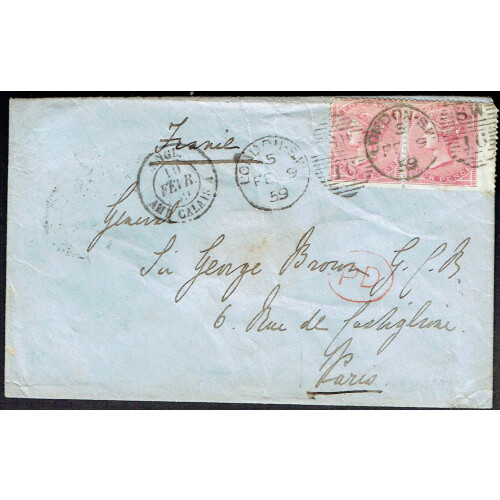 France
ANGL.
10
FEVR
59
AMB. CALAIS A
LONDON-S.W
5 9
FE
59
LONDON-S.W
5 9
FE
59
S.W
16
General
Sir George Brown G.C.B.
PD
6 Rue de Castiglione
Paris